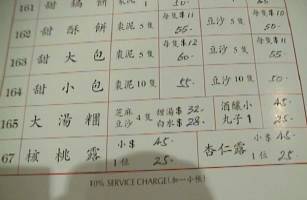 161 甜 鍋 餅 棗泥 1 50-
162 甜 酥 餅 棗泥 5隻 每隻$11 55- 豆沙 5隻 50-
163 甜 大 包 棗泥 5隻 每隻$12 60- 豆沙 5隻 每隻$11 55-
164 甜 小 包 棗泥 10隻 55- 豆沙 10隻 50-
165 大 湯 糰 芝麻 豆沙 4隻 甜湯$32- 白水$28- 酒釀小丸子 1 45- 25-
67 核 桃 露 小$45- 1位 25- 杏仁露 小$45- 1位 25-
10% SERVICE CHARGE(加一小賬)